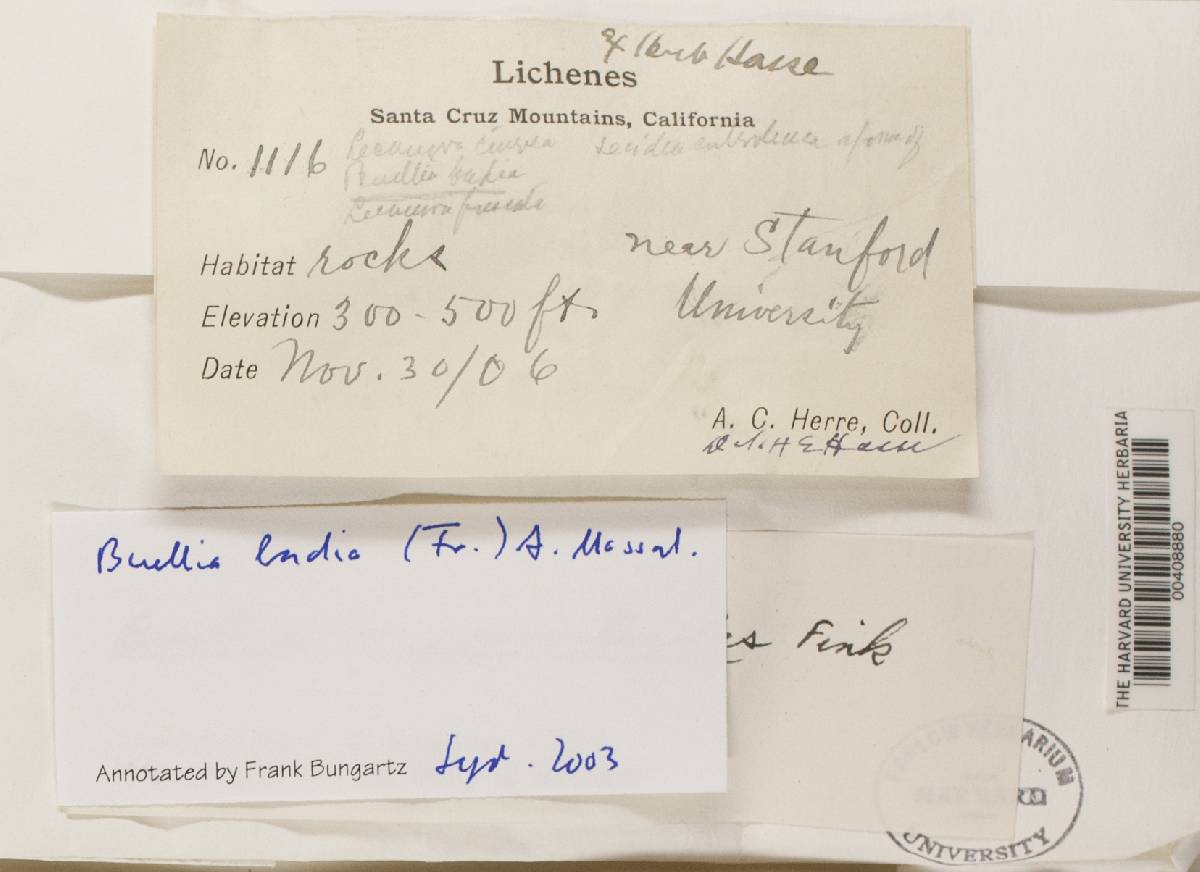 Ex Herb Hasse
Lichenes
Santa Cruz Mountains, California
No. 1116 Lecanora cinerea
Buellia badia
Lecanora
Habitat rocks near Stanford
Elevation 300-500 ft. University
Date Nov. 30/06
A. C. Herre, Coll.
H E Hasse
Buellia badia (Fr.) A. Massal.
Fink
Annotated by Frank Bungartz Sept. 2003
UNIVERSITY
THE HARVARD UNIVERSITY HERBARIA
00408880